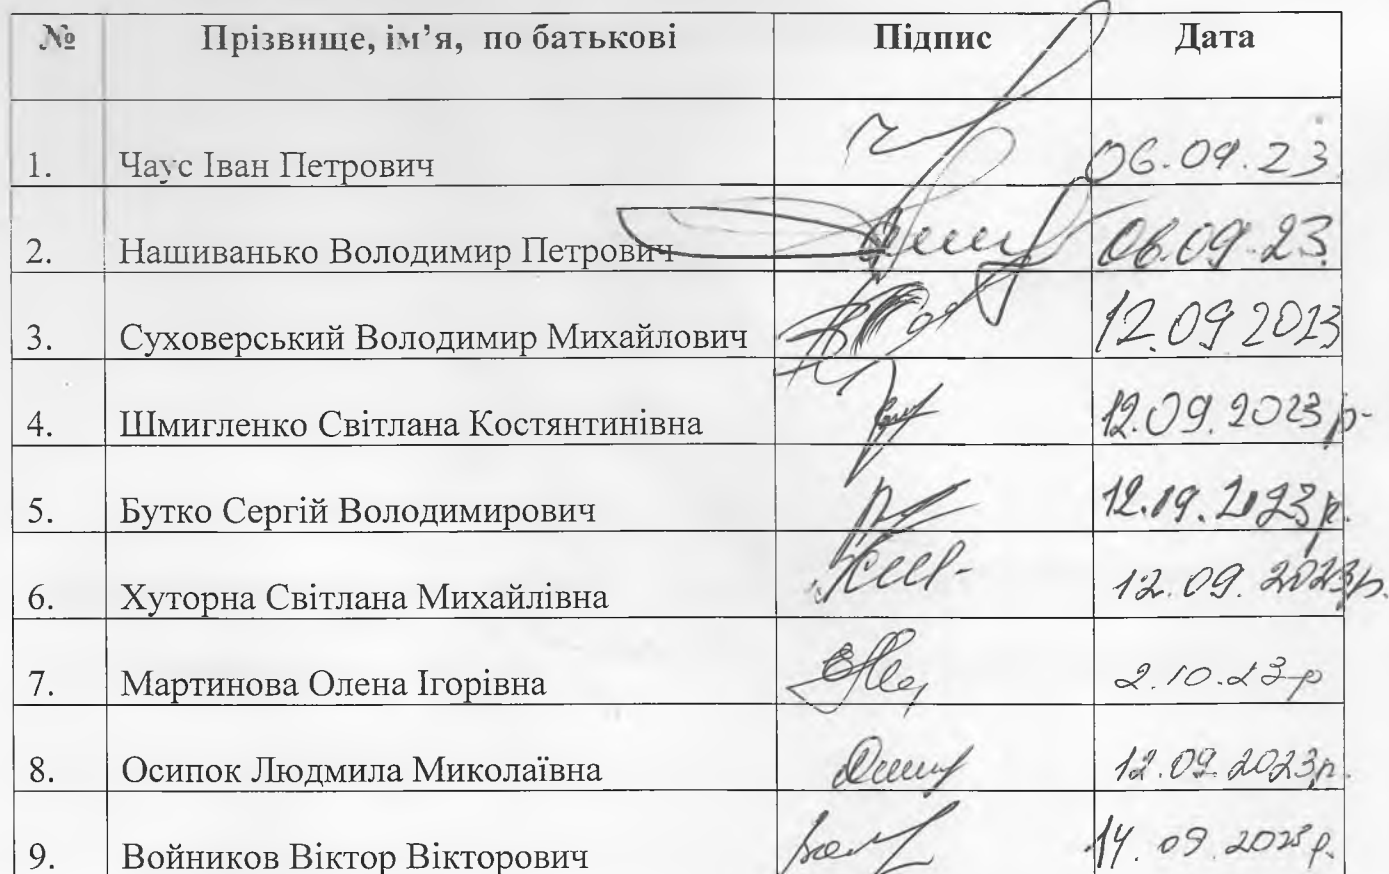 № Прізвище, ім’я, по батькові Підпис Дата
1. Чаус Іван Петрович 06.09.23
2. Нашиванько Володимир Петрович 06.09.23
3. Суховерський Володимир Михайлович 12.09 2023
4. Шмигленко Світлана Костянтинівна 12.09.2023 р.
5. Бутко Сергій Володимирович 12.09.2023 р.
6. Хуторна Світлана Михайлівна 12.09.2023р.
7. Мартинова Олена Ігорівна 2.10.23 р
8. Осипок Людмила Миколаївна 12.09.2023р.
9. Войников Віктор Вікторович 14.09.2023 р.